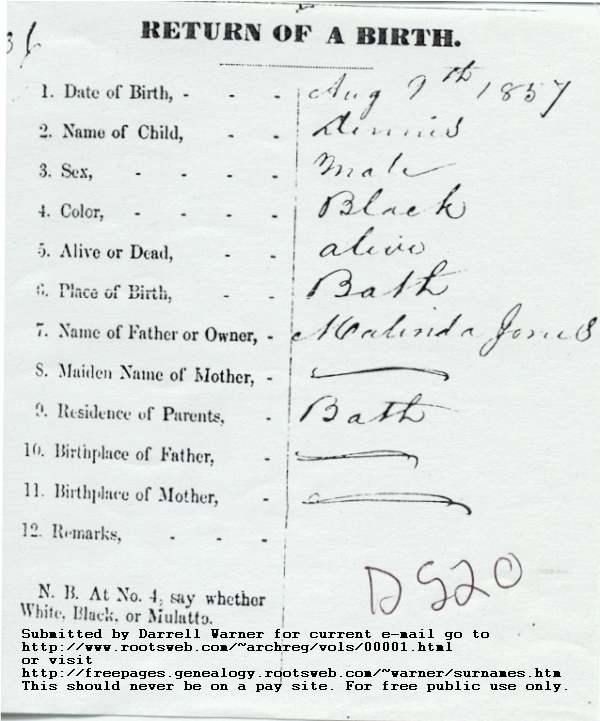 36
RETURN OF A BIRTH.
1. Date of Birth, - - - Aug 9th 1857
2. Name of Child, - - Dennis
3. Sex, - - - - Male
4. Color, - - - - Black
5. Alive or Dead, - - alive
6. Place of Birth, - - Bath
7. Name of Father or Owner, - Malinda Jones
8. Maiden Name of Mother, -
9. Residence of Parents, - Bath
10. Birthplace of Father, -
11. Birthplace of Mother, -
12. Remarks, - - -
D520
N. B. At No. 4, say whether
White, Black, or Mulatto.
Submitted by Darrell Warner for current e-mail go to
http://www.rootsweb.com/~archreg/vols/00001.html
or visit
http://freepages.genealogy.rootsweb.com/~warner/surnames.htm
This should never be on a pay site. For free public use only.